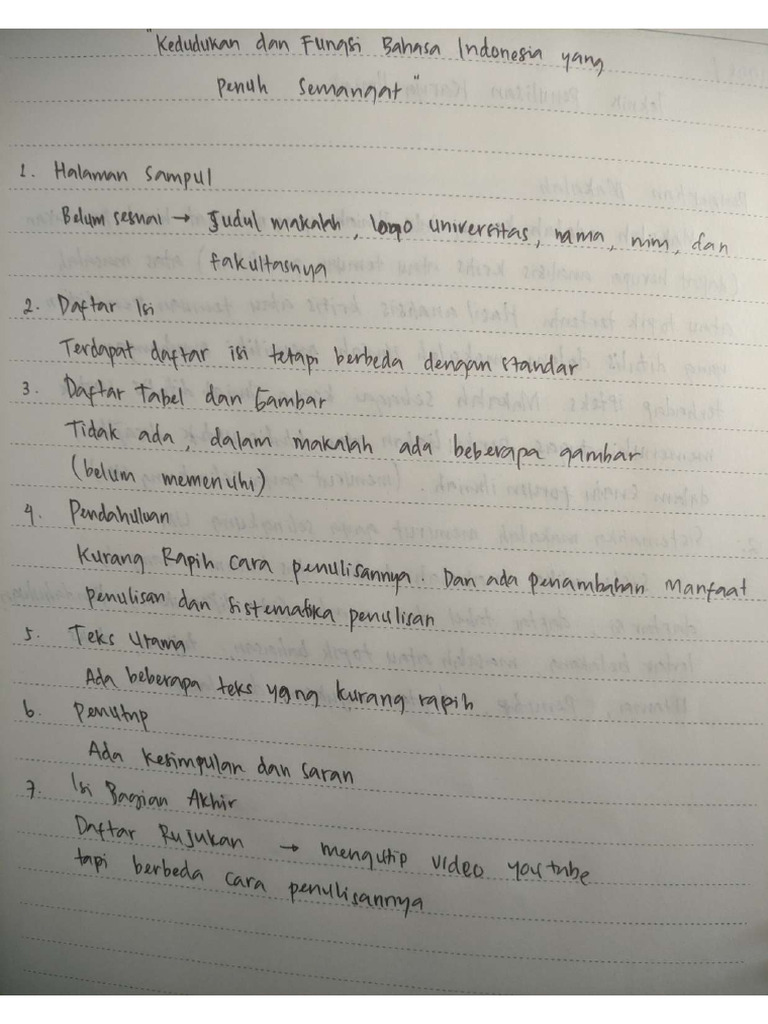 "Kedudukan dan Fungsi Bahasa Indonesia yang
Penuh Semangat"
1. Halaman Sampul
Belum sesuai → Judul makalah, logo universitas, nama, nim, dan
fakultasnya
2. Daftar Isi
Terdapat daftar isi tetapi berbeda dengan standar
3. Daftar Tabel dan Gambar
Tidak ada, dalam makalah ada beberapa gambar
(belum memenuhi)
4. Pendahuluan
Kurang Rapih cara penulisannya. Dan ada penambahan Manfaat
penulisan dan Sistematika penulisan
5. Teks Utama
Ada beberapa teks yang kurang rapih
6. Penutup
Ada Kesimpulan dan saran
7. Isi Bagian Akhir
Daftar Rujukan → mengutip video youtube
tapi berbeda cara penulisannya